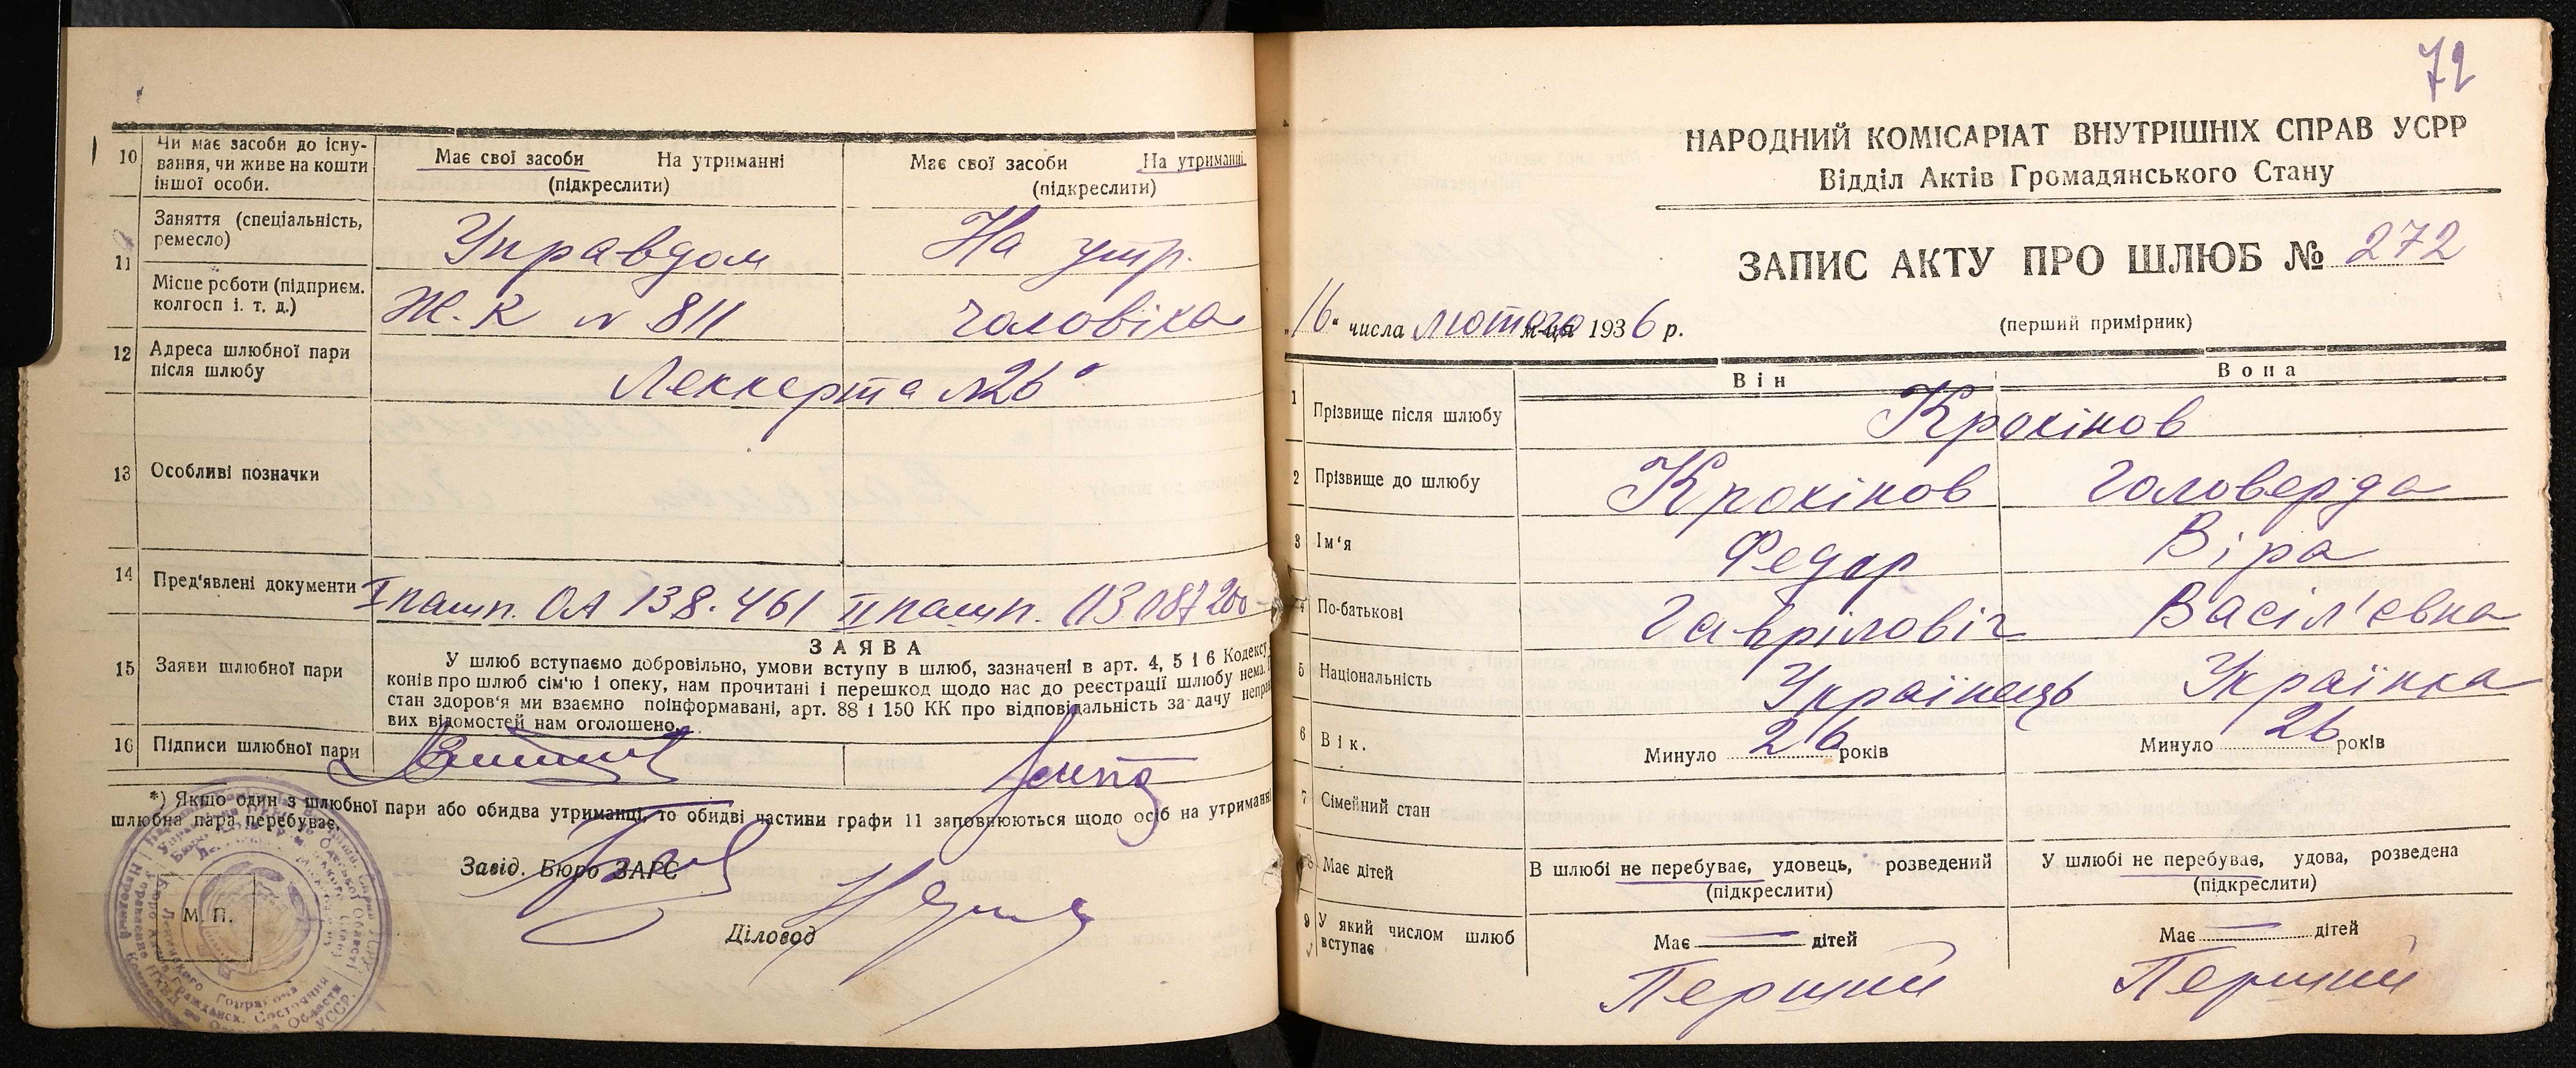 10 Чи має засоби до існу-
вання, чи живе на кошти
іншої особи.
Має свої засоби На утриманні
(підкреслити)
Має свої засоби На утриманні
(підкреслити)
11
Заняття (спеціальність,
ремесло)
Управдом
На утр.
Місце роботи (підприєм.
колгосп і. т. д.)
Ж.К № 811
чоловіка
12 Адреса шлюбної пари
після шлюбу
Леккерта №26
13 Особливі позначки
14 Пред'явлені документи
I пашп. ОА 138.461 II пашп. 087200
15 Заяви шлюбної пари
ЗАЯВА
У шлюб вступаємо добровільно, умови вступу в шлюб, зазначені в арт. 4, 5 і 6 Кодексу
конів про шлюб сім'ю і опеку, нам прочитані і перешкод щодо нас до реєстрації шлюбу нема.
стан здоров'я ми взаємно поінформавані, арт. 88 і 150 КК про відповідальність за дачу неправ
вих відомостей нам оголошено.
16 Підписи шлюбної пари
*) Якщо один з шлюбної пари або обидва утриманці, то обидві частини графи 11 заповнюються щодо осіб на утриманні
шлюбна пара перебуває.
Завід. Бюро ЗАРС
М. П.
Діловод
72
НАРОДНИЙ КОМІСАРІАТ ВНУТРІШНІХ СПРАВ УСРР
Відділ Актів Громадянського Стану
ЗАПИС АКТУ ПРО ШЛЮБ № 272
"16" числа лютого м-ця 1936 р.
(перший примірник)
Він Вона
1 Прізвище після шлюбу
Крохінов
2 Прізвище до шлюбу
Крохінов Головерда
3 Ім'я
Федор Віра
4 По-батькові
Гавріловіч Васіл'євна
5 Національність
Українець Українка
6 Вік.
Минуло 26 років
Минуло 26 років
7 Сімейний стан
8 Має дітей
В шлюбі не перебуває, удовець, розведений
(підкреслити)
У шлюбі не перебуває, удова, розведена
(підкреслити)
9 У який числом шлюб
вступає
Має — дітей
Має — дітей
Перший Перший